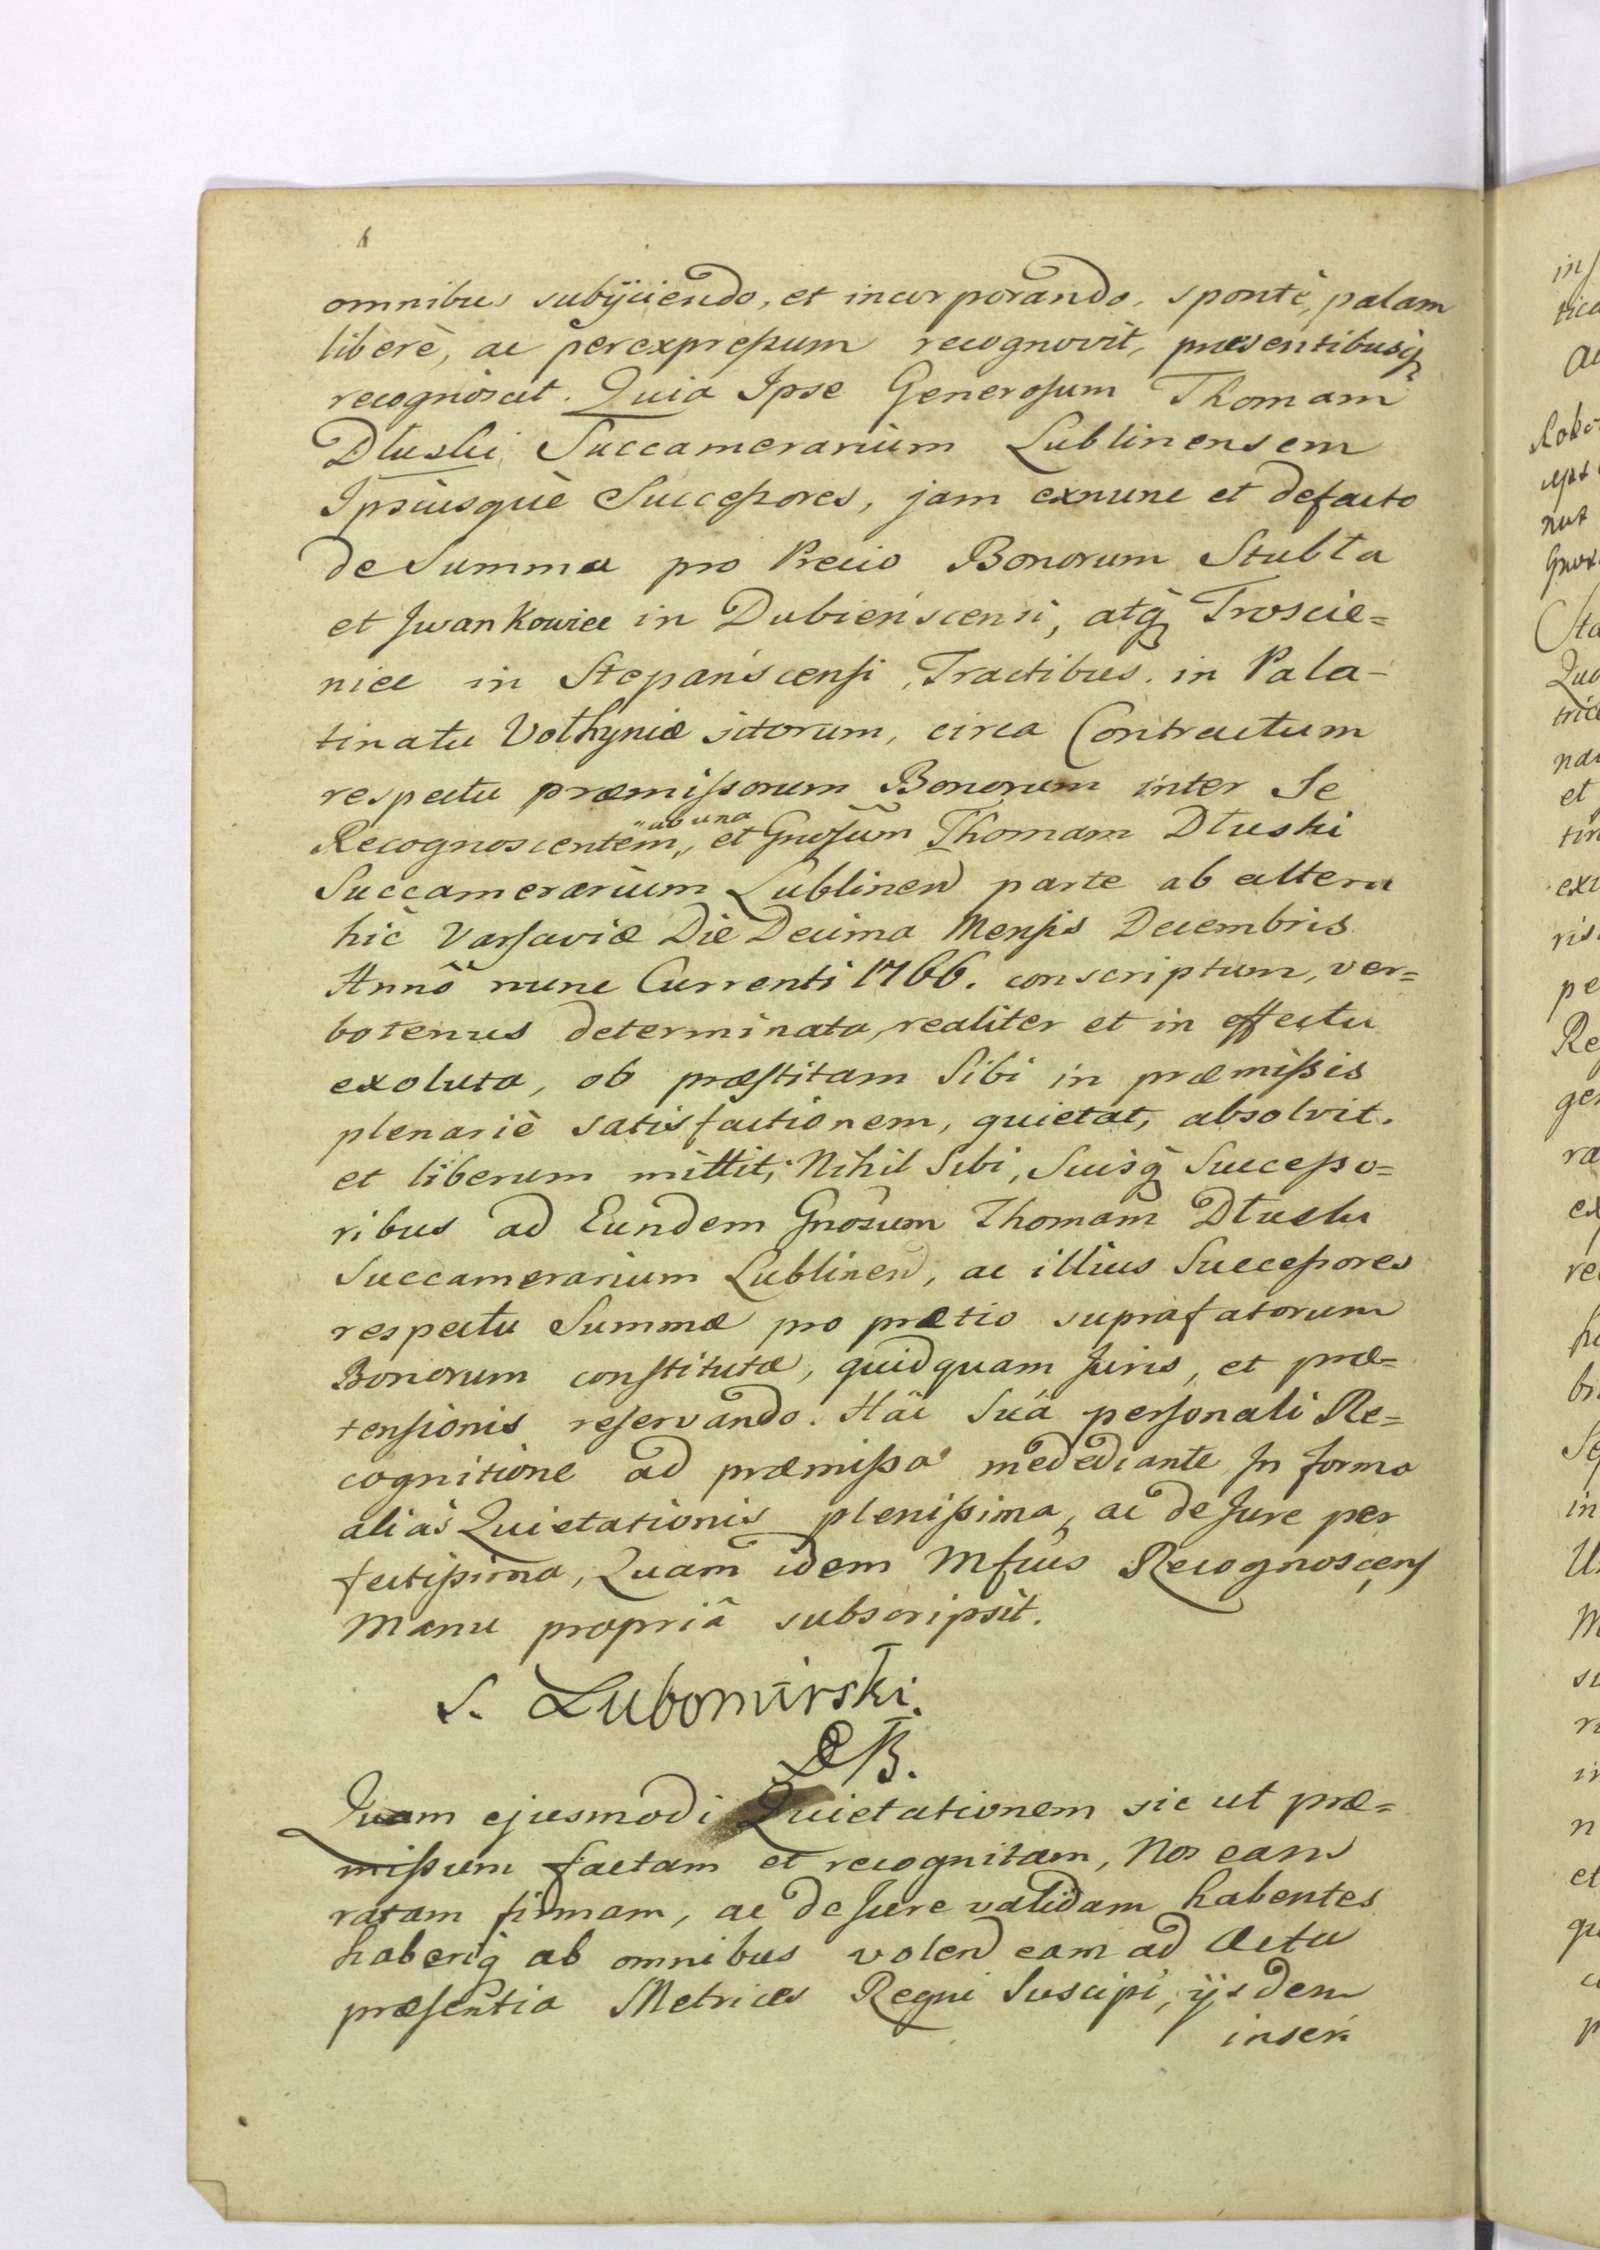 omnibus subÿciendo, et incorporando, spontè, palam
liberè, ac perexpressum recognovit, præsentibusq
recognoscit. Quia Ipse Generosum Thomam
Dłuski Succamerarium Lublinensem
Ipsiusquè Successores, jam exnunc et defacto
de Summa pro Precio Bonorum Stubła
et Jwankowice in Dubieńscensi, atq Troscie=
nice in Stepańscensi, Tractibus. in Pala-
tinatu Volhyniæ sitorum, circa Contractum
respectu præmissorum Bonorum inter Se
Recognoscentem,, "ab una et Gnosum Thomam Dłuski
Succamerarium Lublinen parte ab altera
hic Varsaviæ Die Decima Mensis Decembris
Annô nunc Currenti 1766. conscriptum, ver=
botenus determinata, realiter et in effectu
exoluta, ob præstitam Sibi in præmissis
plenariè satisfactionem, quietat, absolvit.
et liberum mittit; Nihil Sibi, Suisq Successo=
ribus ad Eundem Gnosum Thomam Dłuski
Succamerarium Lublinen, ac illius Successores
respectu Summæ pro prætio suprafatorum
Bonorum constitutæ, quidquam Juris, et præ=
tensionis reservando. Hâc Suâ personali Re=
cognitione ad præmissa medediante In forma
alias Quietationis plenissima, ac de Jure per
fectissima, Quam idem Mfcus Recognoscens
Manu propriâ subscripsit.
S. Lubomirski.
Quam ejusmodi Quietationem sic ut præ=
missum factam et recognitam, Nos eam
ratam firmam, ac de Jure validam habentes
haberiq ab omnibus volen eam ad Acta
præsentia Metrices Regni Suscipi, ijsdem
inseri